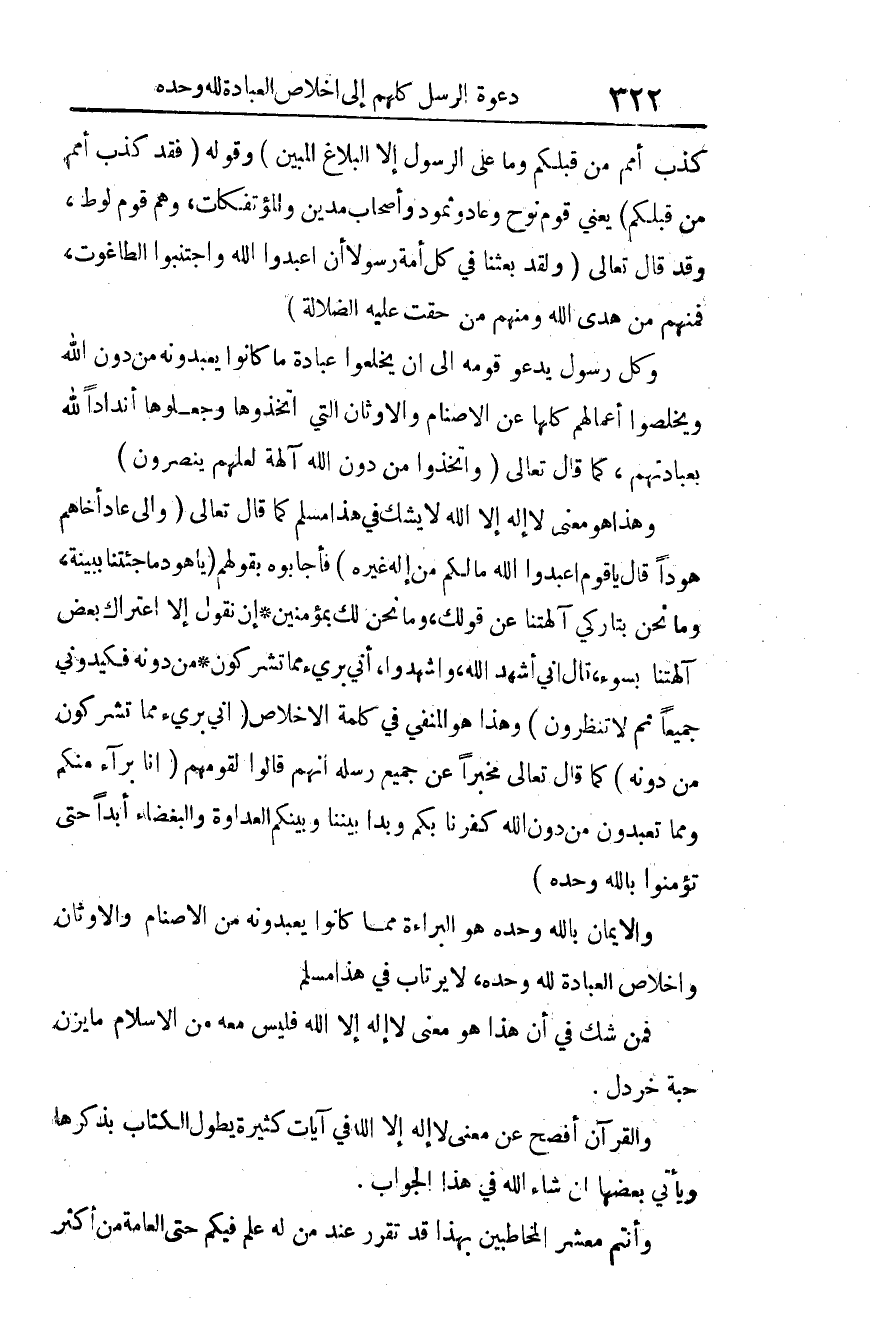 ٣٢٢ دعوة الرسل كلهم إلى اخلاص العبادة لله وحده
كذب أمم من قبلكم وما على الرسول إلا البلاغ المبين ) وقوله ( فقد كذب أمم
من قبلكم) يعني قوم نوح وعاد وثمود وأصحاب مدين والمؤتفكات، وهم قوم لوط ،
وقد قال تعالى ( ولقد بعثنا في كل أمة رسولا أن اعبدوا الله واجتنبوا الطاغوت،
فمنهم من هدى الله ومنهم من حقت عليه الضلالة )
وكل رسول يدعو قومه الى ان يخلعوا عبادة ما كانوا يعبدونه من دون الله
ويخلصوا أعمالهم كلها عن الاصنام والاوثان التي اتخذوها وجعلوها أنداداً لله
بعبادتهم ، كما قال تعالى ( واتخذوا من دون الله آلهة لعلهم ينصرون )
وهذا هو معنى لا إله إلا الله لا يشك في هذا مسلم كما قال تعالى ( والى عاد أخاهم
هوداً قال يا قوم اعبدوا الله مالكم من إله غيره ) فأجابوه بقولهم (يا هود ما جئتنا ببينة،
وما نحن بتاركي آلهتنا عن قولك، وما نحن لك بمؤمنين*إن نقول إلا اعتراك بعض
آلهتنا بسوء، قال اني أشهد الله، واشهدوا، أني بريء مما تشركون*من دونه فكيدوني
جميعاً ثم لا تنظرون ) وهذا هو المنفي في كلمة الاخلاص ( اني بريء مما تشركون
من دونه ) كما قال تعالى مخبراً عن جميع رسله انهم قالوا لقومهم ( انا برآء منكم
ومما تعبدون من دون الله كفرنا بكم وبدا بيننا وبينكم العداوة والبغضاء أبداً حتى
تؤمنوا بالله وحده )
والايمان بالله وحده هو البراءة مما كانوا يعبدونه من الاصنام والاوثان
واخلاص العبادة لله وحده، لا يرتاب في هذا مسلم
فمن شك في أن هذا هو معنى لا إله إلا الله فليس معه من الاسلام ما يزن
حبة خردل .
والقرآن أفصح عن معنى لا إله إلا الله في آيات كثيرة يطول الكتاب بذكرها
ويأتي بعضها ان شاء الله في هذا الجواب .
وأنتم معشر المخاطبين بهذا قد تقرر عند من له علم فيكم حتى العامة من أكثر